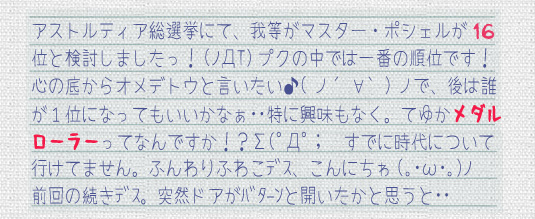 アストルティア総選挙にて、我等がマスター・ポシェルが 16
位と検討しましたっ！(ノДT) プクの中では一番の順位です！
心の底からオメデトウと言いたい♪( ノ´ ∀｀ ) ノで、後は誰
が１位になってもいいかなぁ‥特に興味もなく。てゆかメダル
ローラーってなんですか！？Σ(ﾟДﾟ； すでに時代について
行けてません。ふんわりふわこデス、こんにちわ (｡･ω･｡)ノ
前回の続きデス。突然ドアがバターンと開いたかと思うと‥